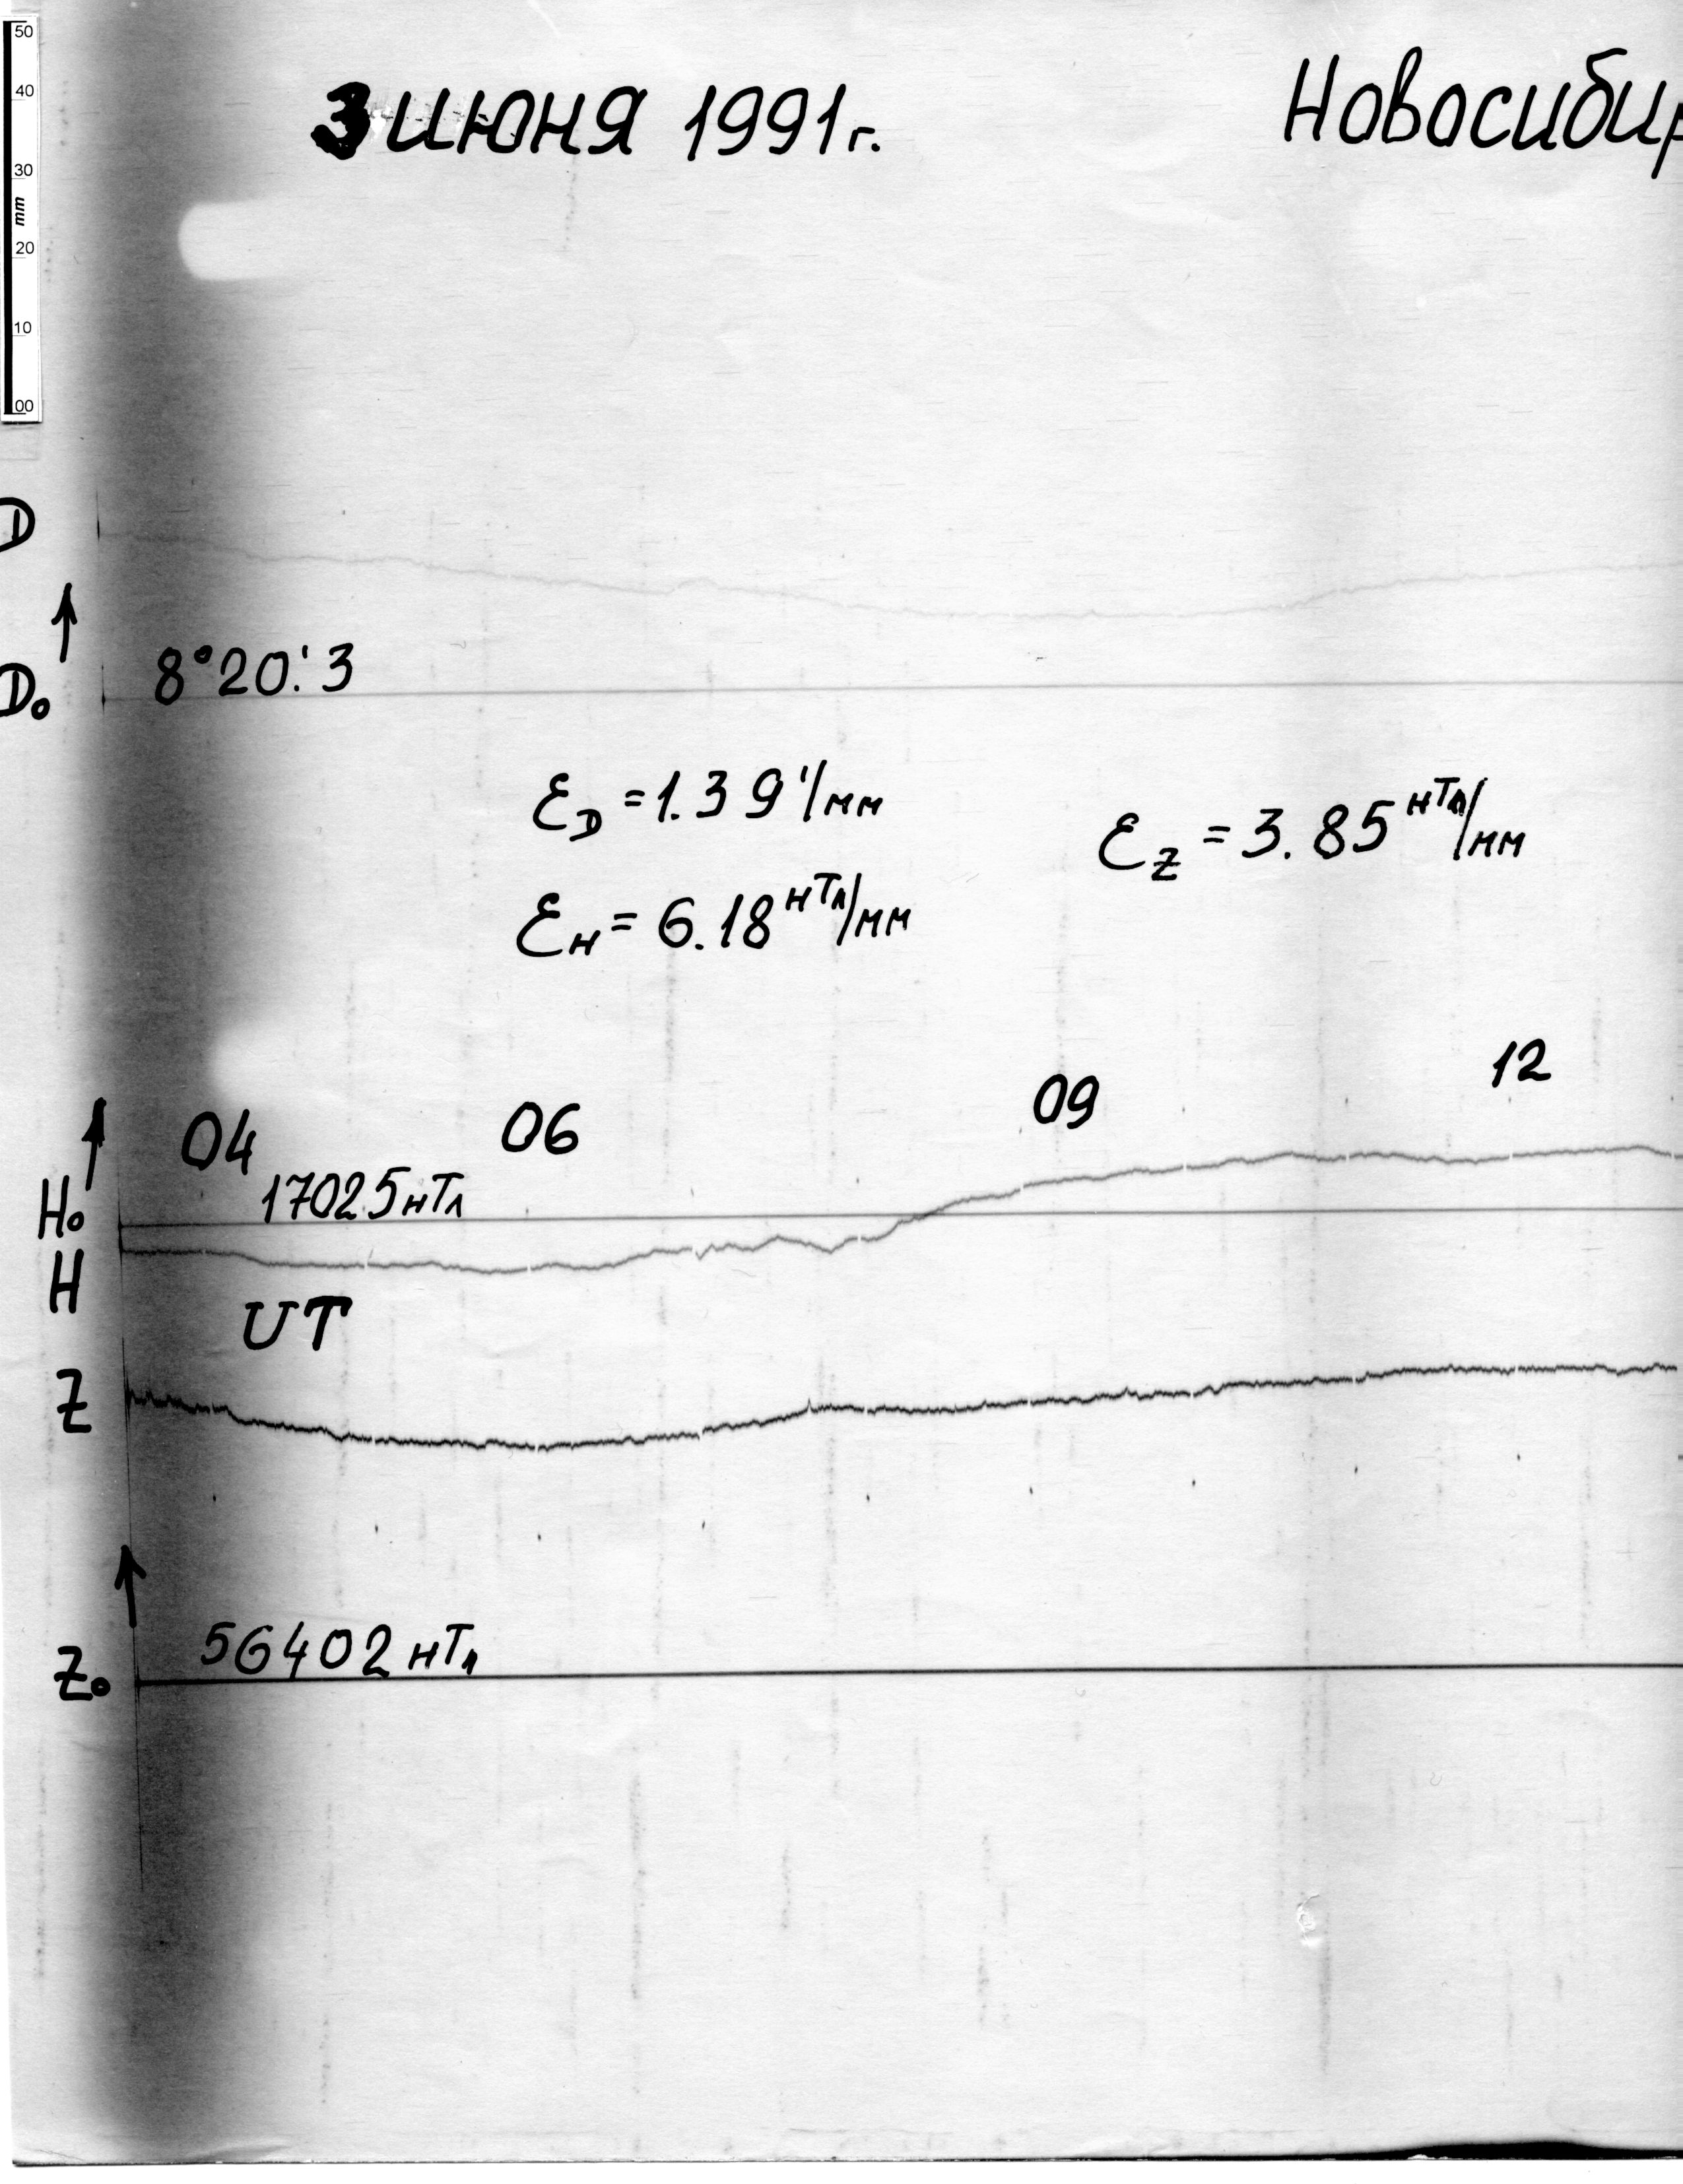 50
40
30
mm
20
10
00
3 июня 1991г.
Новосибир
D
8°20.'3
D₀
ε_D = 1.39'/мм
ε_Z = 3.85 нТл/мм
ε_H = 6.18 нТл/мм
04 06 09 12
17025нТл
H₀
H
UT
Z
56402 нТл
Z₀